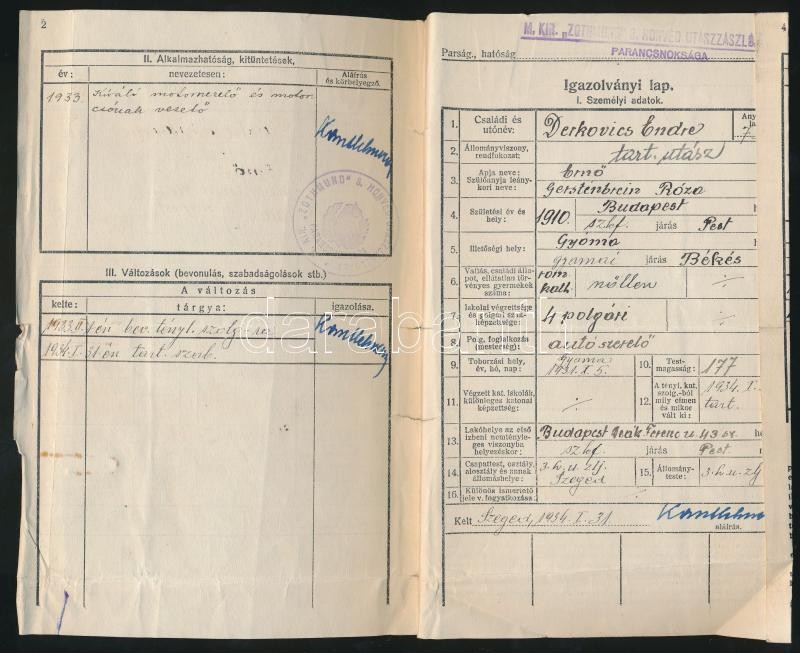 2
II. Alkalmazhatóság, kitüntetések,
év: nevezetesen: Aláírás és körbélyegző.
1933. Kiváló motorszerelő és motor-
csónak vezető
III. Változások (bevonulás, szabadságolások stb.)
A változás
kelte: tárgya: igazolása.
1934.I. 31-én tart. szerb.
M. KIR. „ZOTHMUND” 3. HONVÉD UTÁSZZÁSZLÓ
PARANCSNOKSÁGA
Parság., hatóság
4
Igazolványi lap.
I. Személyi adatok.
1. Családi és utónév: Derkovics Endre
2. Állományviszony, rendfokozat: tart. utász
3. Apja neve: Ernő
Szülőanyja leánykori neve: Gerstenbrein Róza
4. Születési év és hely: 1910. Budapest
szkf. járás Pest
5. Illetőségi hely: Gyoma
gyomai járás Békés
6. Vallás, családi állapot, ellátatlan törvényes gyermekek száma: róm. kath. nőtlen ÷
7. Iskolai végzettsége és polgári szakképzettsége: 4 polgári ÷
8. Polg. foglalkozás (mesterség): autószerelő
9. Toborzási hely, év, hó, nap: Gyoma 1931. X. 5. 10. Testmagasság: 177
11. Végzett kat. iskolák, különleges katonai képzettség: ÷ 12. A tényl. kat. szolg.-ból mily címen és mikor vált ki: 1934. I. tart.
13. Lakóhelye az első ízbeni nemtényleges viszonyba helyezéskor: Budapest Deák Ferenc u. 43 sz.
szkf. járás Pest
14. Csapattest, osztály, alosztály és annak állomáshelye: 3. h. u. zlj. Szeged 15. Állományteste: 3. h. u. zlj.
16. Különös ismertető jele v. fogyatkozása: ÷
Kelt Szeged, 1934. I. 31.
aláírás.
darabanth